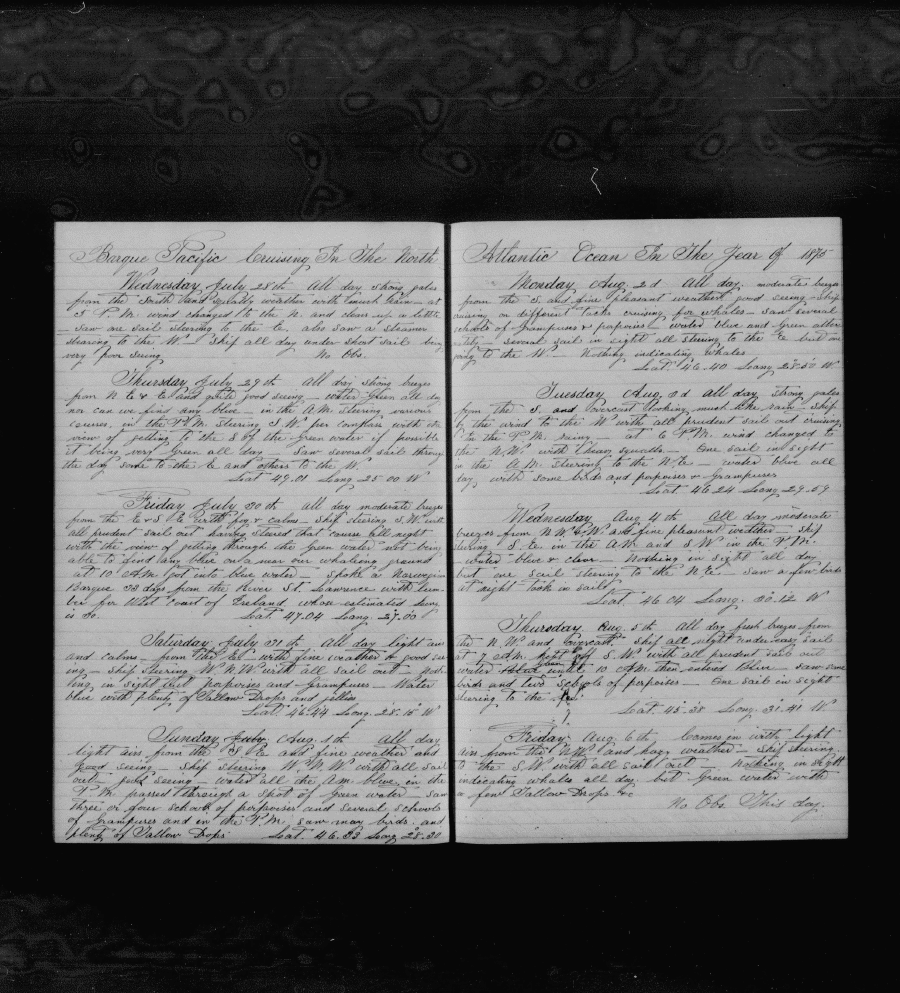 Barque Pacific Cruising In The North
Wednesday July 28th All day strong gales
from the South and squally weather with much rain - at
5 P.M. wind changed to the N. and clears up a little
- Saw one sail steering to the E. also saw a steamer
stearing to the W. - Ship all day under short sail being
very poor seeing No Obs.
Thursday July 29th All day strong breezes
from N E & E and quite good seeing - water Green all day
nor can we find any blue - in the A.M. Stering various
courses, in the P.M. Stering S W per compass with the
view of getting to the S of the Green water if possible
it being very Green all day - Saw several sail through
the day some to the E and others to the W.
Lat 49.01 Long 25.00 W
Friday July 30th all day moderate breezes
from the E & S E with fog & calms - Ship stering S.W. with
all prudent sail out having stered that course all night
with the view of getting through the Green water not being
able to find any blue on or near our whaleing ground
at 10 A.M. Got into blue water - Spoke a Norwegian
Barque 33 days from the River St. Lawrence with lum-
ber for West Coast of Ireland, whose estimated Long.
is 30. Lat. 47.04 Long. 27.00
Saturday July 31th All day light airs
and calms - from the E with fine weather & good see
ing - Ship steering W.N.W with all sail out - noth
ing in sight but porpoises and Grampuses - Water
blue with plenty of Tallow Drops and jellies
Lat. 46.44 Long. 28.10 W
Sunday July Aug. 1th All day
light airs, from the S E and fine weather and
good seeing - Ship steering W.N.W with all sail
out - good seeing - water all the A.M. blue, in the
P.M. passed through a spot of Green water - saw
three or four schools of porpoises and several schools
of Grampuses and in the P.M. saw many birds. and
plenty of Tallow Drops Lat. 46.33 Long 28.30
Atlantic Ocean In The Year Of 1875
Monday Aug. 2d All day. moderate breezes
from the S. and fine pleasant weather good seeing - Ship
cruising on different tacks cruising for whales - saw several
schools of Grampuses & porpoises - water blue and Green alter
nately - several sail in sight all steering to the E but one
going to the W - Nothing indicating whales
Lat. 46.40 Long 28.50 W.
Tuesday Aug. 3d All day Strong gales
from the S. and overcast looking much like rain - Ship
by the wind to the W with all prudent sail out cruising
in the P.M. rainy - at 6 P.M. wind changed to
the N.W. with heavy squalls - One sail in sight
in the A.M. steering to the N.E - water blue all
day with some birds and porpoises & Grampuses
Lat 46.24 Long 29.59
Wednesday Aug 4th All day moderate
breezes from N.W. & W and fine pleasant weather - Ship
stering S.E. in the A.M. and S W in the P.M.
- water blue & clear - Nothing in sight all day
but one sail steering to the N.E. - saw a few birds
at night took in sail
Lat. 46.04 Long. 30.12 W
Thursday Aug. 5th All day fresh breezes from
the N.W and overcast Ship all night under easy sail
at 7 A.M. kept off S.W. with all prudent sail out
water blue Green until 10 A.M. then entered Blue - saw some
birds and two schools of porpoises - One sail in sight
steering to the
Lat. 45.38 Long. 31.41 W
Friday Aug. 6th Comes in with light
airs from the N.W. and hazy weather - Ship steering
to the S.W with all sail out - Nothing in sight
indicating whales all day but Green water with
a few Tallow Drops &c
No Obs This day.